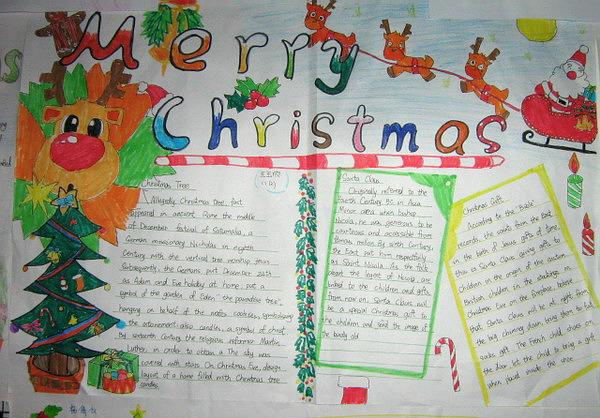 Merry
Christmas
Christmas Tree
Allegedly Christmas Tree, first
appeared in ancient Rome the middle
of December festival of Saturnalia, a
German missionary Nicholas in eighth
Century with the vertical tree
Subsequently, the Germans put December 24th
as Adam and Eve holiday at home, put a
symbol of the garden of Eden "the paradise tree"
hanging on behalf of the cookies, symbolizing
the atonement also candles, a symbol of christ
by sixteenth Century, the religious reformer Martin
Luther, in order to obtain a The sky was
covered with stars On Christmas Eve, design
layout of a home filled with Christmas tree
candles.
Santa Claus
Originally referred to the
Fourth Century BC in Asia
Minor area when bishop
Nicola, he was generous to be
courteous and accessible from
famous
the East put him respectfully
as Saint Nicola. As the fact
about the legend of Nicola are
linked to the children and gifts,
from now on, Santa Claus will
be a special Christmas gift to
the children and send the image of
the kindly old
Christmas Gift
According to the "Bible"
records, the santa from the East
in the birth of Jesus gift of time,
this is Santa Claus giving gifts to
children in the origin of the custom.
British children in the stockings on
Christmas Eve on the fireplace, believe
that Santa Claus will be at night from
the big chimney down, bring them to the
gift. The French child shoes on
the door let the child to bring a gift
when placed inside the shoe